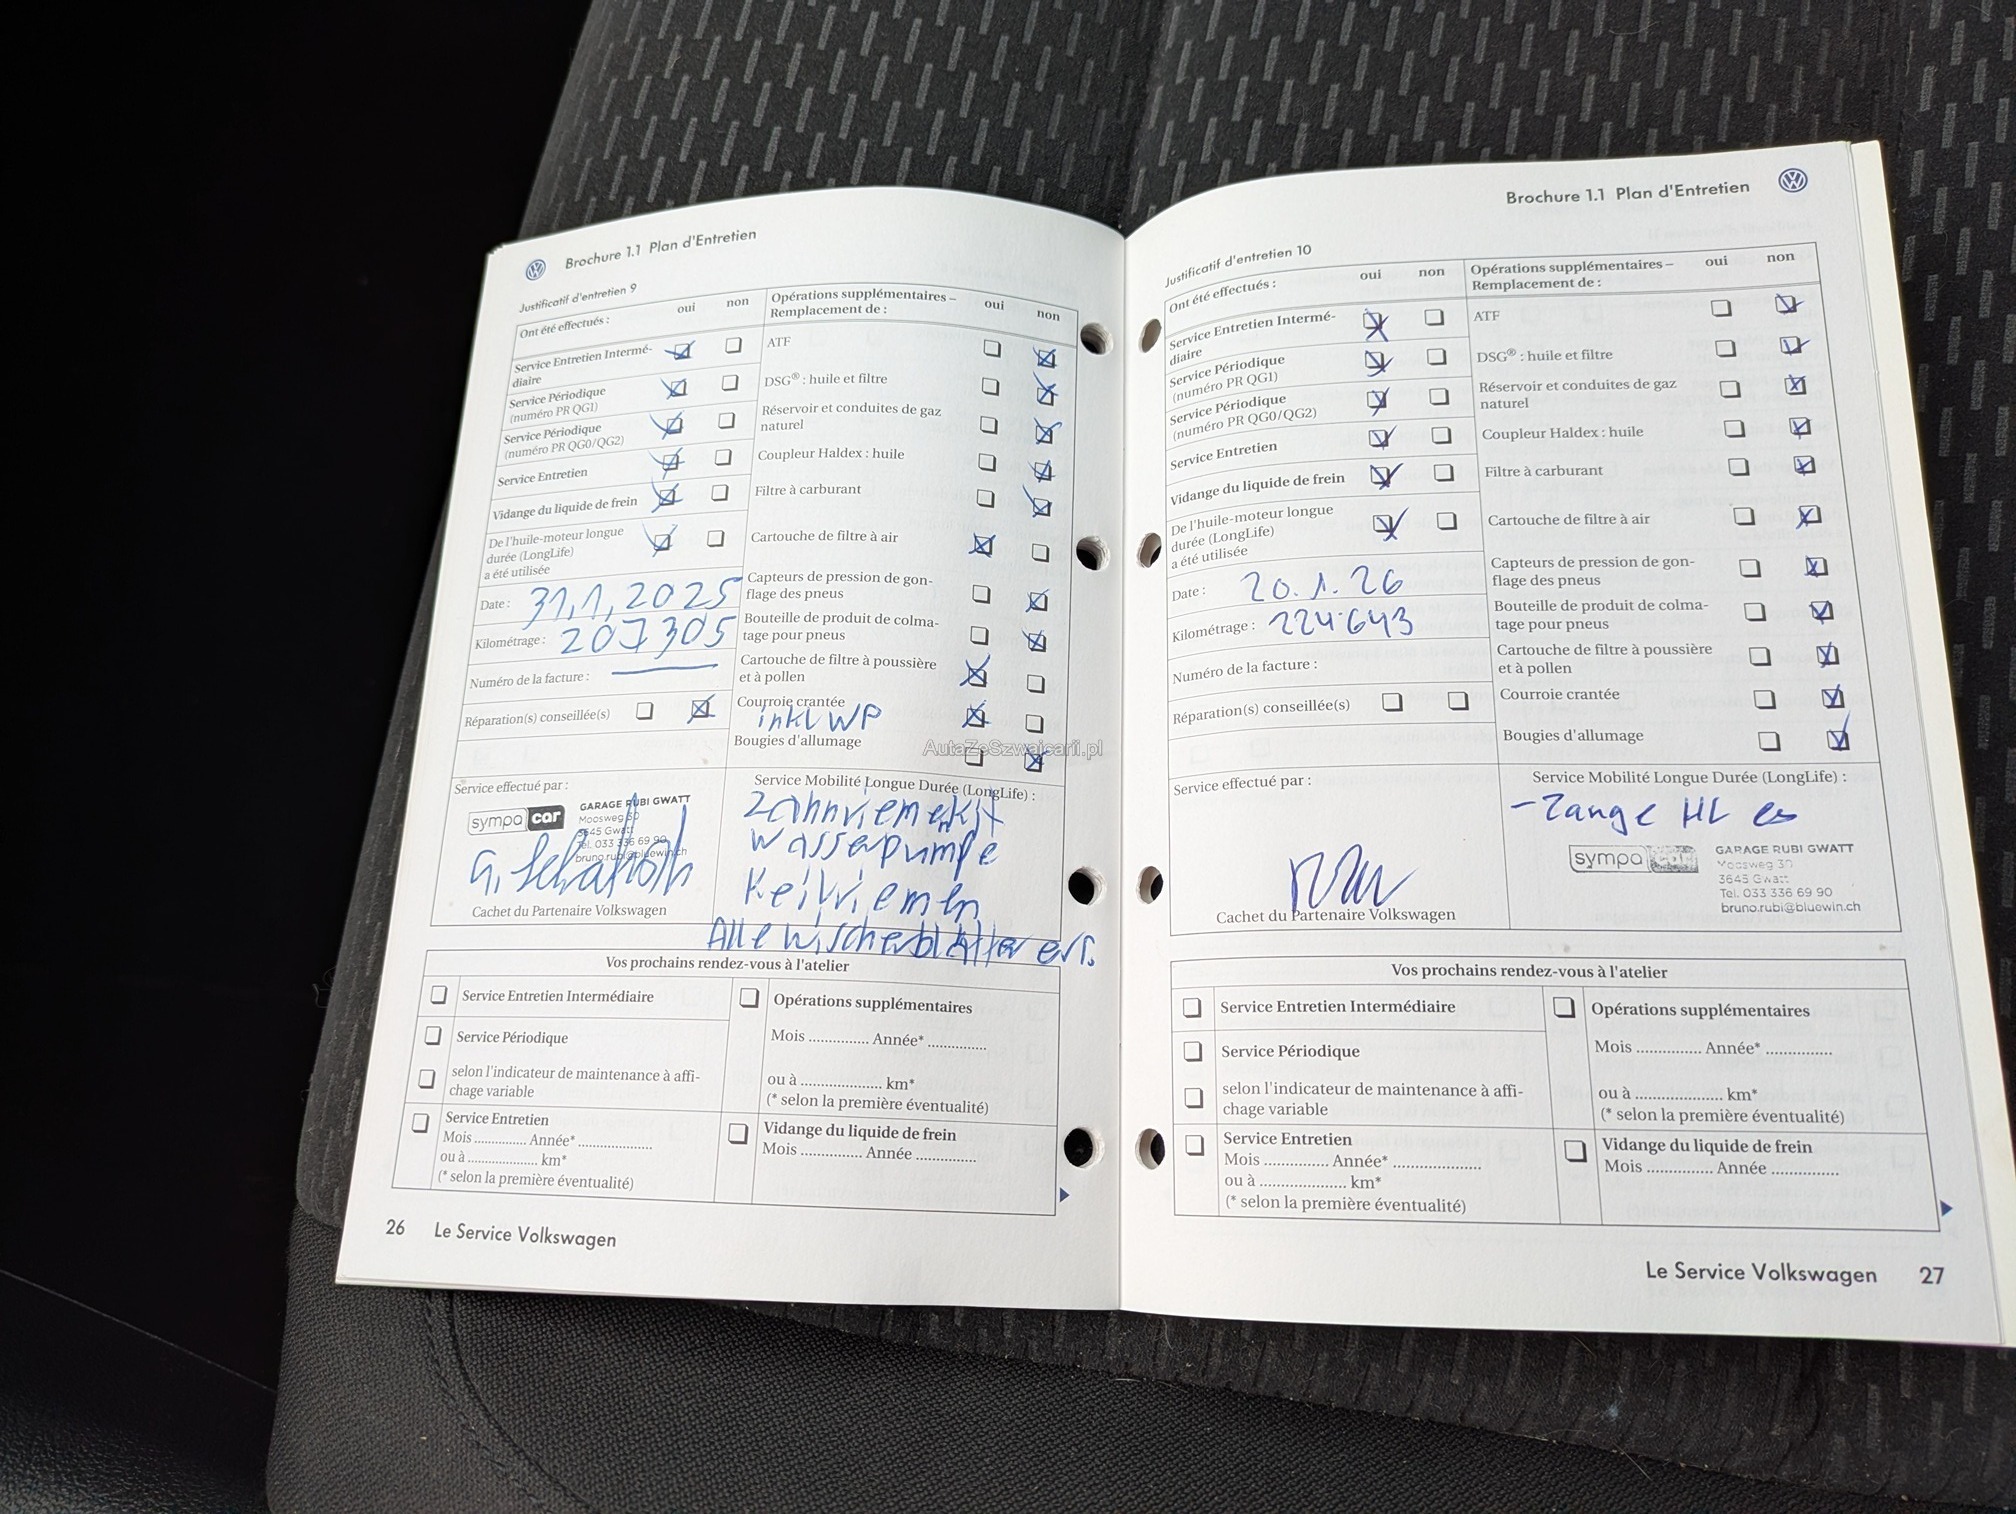 Brochure 1.1 Plan d'Entretien
Justificatif d'entretien 9
Ont été effectués :
oui
non
Opérations supplémentaires –
Remplacement de :
oui
non
Service Entretien Intermé-
diaire
Service Périodique
(numéro PR QG1)
Service Périodique
(numéro PR QG0/QG2)
Service Entretien
Vidange du liquide de frein
De l'huile-moteur longue
durée (LongLife)
a été utilisée
Date : 31.1.2025
Kilométrage : 207305
Numéro de la facture :
Réparation(s) conseillée(s)
ATF
DSG® : huile et filtre
Réservoir et conduites de gaz
naturel
Coupleur Haldex : huile
Filtre à carburant
Cartouche de filtre à air
Capteurs de pression de gon-
flage des pneus
Bouteille de produit de colma-
tage pour pneus
Cartouche de filtre à poussière
et à pollen
Courroie crantée
inkl WP
Bougies d'allumage
Service effectué par :
sympa car
GARAGE RUBI GWATT
Moosweg 30
3645 Gwatt
Tel. 033 336 69 90
bruno.rubi@bluewin.ch
Cachet du Partenaire Volkswagen
Service Mobilité Longue Durée (LongLife) :
Zahnriemenkit
Wasserpumpe
Keilriemen
Alle Wischerblätter ers.
Vos prochains rendez-vous à l'atelier
Service Entretien Intermédiaire
Service Périodique
selon l'indicateur de maintenance à affi-
chage variable
Service Entretien
Mois .............. Année* ....................
ou à ................... km*
(* selon la première éventualité)
Opérations supplémentaires
Mois ............... Année* ...............
ou à .................... km*
(* selon la première éventualité)
Vidange du liquide de frein
Mois ............... Année ...............
26 Le Service Volkswagen
Brochure 1.1 Plan d'Entretien
Justificatif d'entretien 10
Ont été effectués :
oui
non
Opérations supplémentaires –
Remplacement de :
oui
non
Service Entretien Intermé-
diaire
Service Périodique
(numéro PR QG1)
Service Périodique
(numéro PR QG0/QG2)
Service Entretien
Vidange du liquide de frein
De l'huile-moteur longue
durée (LongLife)
a été utilisée
Date : 20.1.26
Kilométrage : 224.643
Numéro de la facture :
Réparation(s) conseillée(s)
ATF
DSG® : huile et filtre
Réservoir et conduites de gaz
naturel
Coupleur Haldex : huile
Filtre à carburant
Cartouche de filtre à air
Capteurs de pression de gon-
flage des pneus
Bouteille de produit de colma-
tage pour pneus
Cartouche de filtre à poussière
et à pollen
Courroie crantée
Bougies d'allumage
Service effectué par :
Cachet du Partenaire Volkswagen
Service Mobilité Longue Durée (LongLife) :
HL
sympa car
GARAGE RUBI GWATT
Moosweg 30
3645 Gwatt
Tel. 033 336 69 90
bruno.rubi@bluewin.ch
Vos prochains rendez-vous à l'atelier
Service Entretien Intermédiaire
Service Périodique
selon l'indicateur de maintenance à affi-
chage variable
Service Entretien
Mois .............. Année* ....................
ou à ................... km*
(* selon la première éventualité)
Opérations supplémentaires
Mois ............... Année* ...............
ou à .................... km*
(* selon la première éventualité)
Vidange du liquide de frein
Mois ............... Année ...............
Le Service Volkswagen 27
AutaZeSzwajcarii.pl